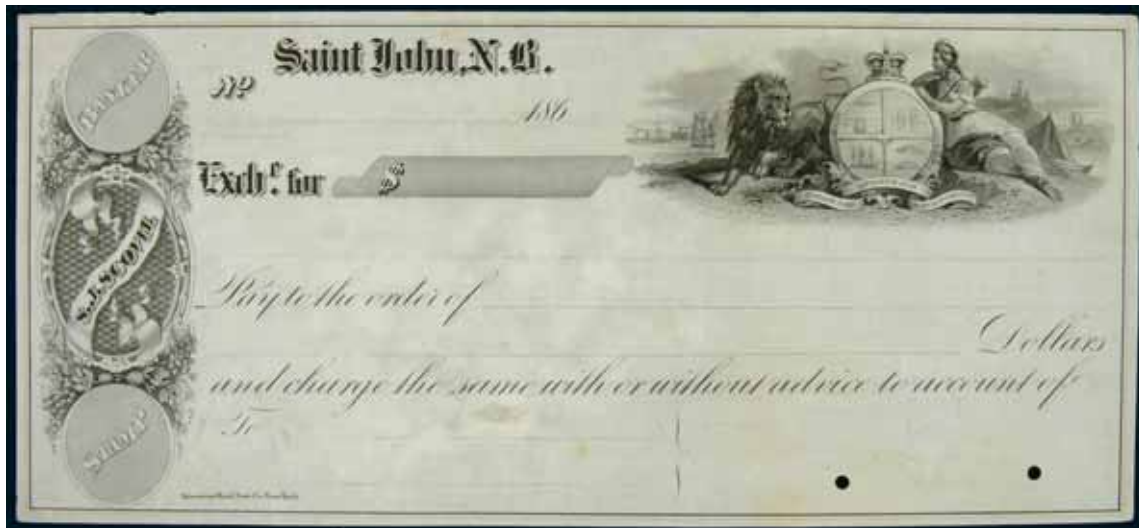 Saint John, N.B.
No
186
Exche. for $
BANKER
S.J. SCOVIL
STAMP
Pay to the order of
Dollars
and charge the same with or without advice to account of
To